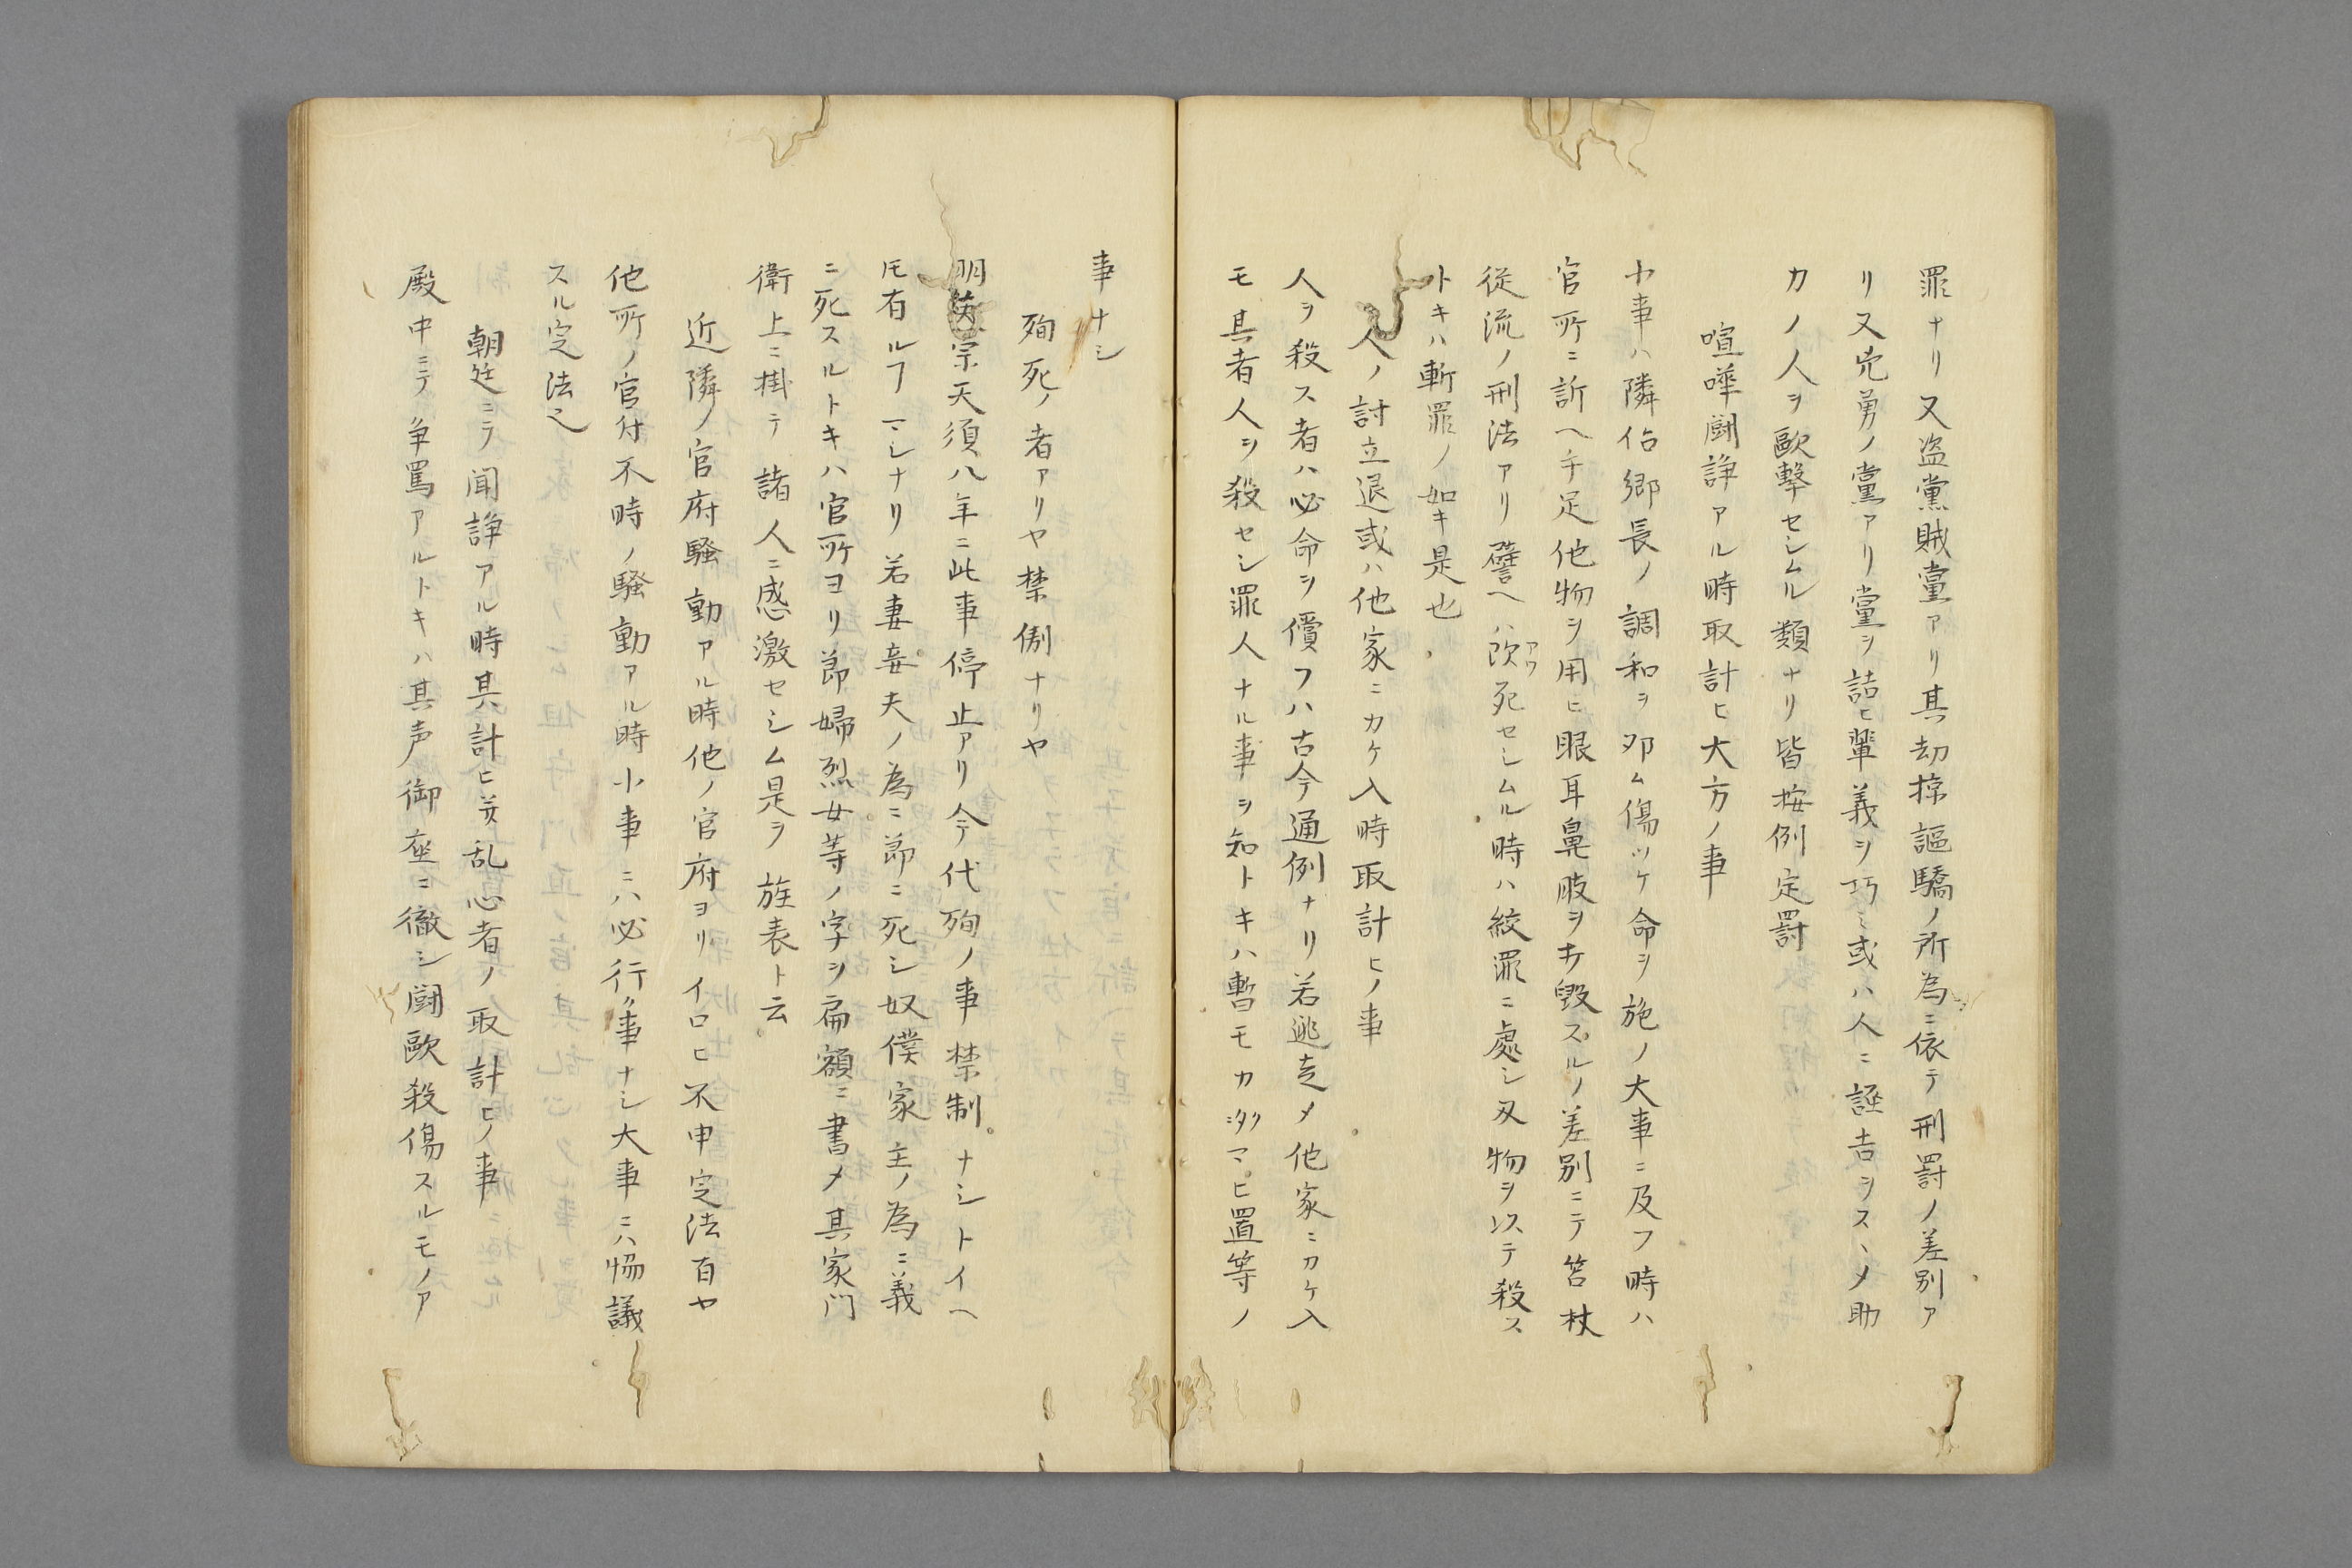 罪ナリ又盗黨賊黨アリ其劫掠謳驕ノ所為ニ依テ刑罸ノ差別ア
リ又兇勇ノ黨アリ黨ヲ詰ヒ輩義ヲ巧ミ或ハ人ニ誣告ヲスヽメ助
カノ人ヲ歐擊セシムル類ナリ皆按例定罸
喧嘩鬪諍アル時取計ヒ大方ノ事
小事ハ隣佑郷長ノ調和ヲ卬ム傷ツケ命ヲ施ノ大事ニ及フ時ハ
官所ニ訴ヘ手足他物ヲ用ヒ眼耳鼻肢ヲ キ毀スルノ差別ニテ笞杖
従流ノ刑法アリ譬ヘハ 死セシムル時ハ絞罪ニ處シ刄物ヲ以テ殺ス
トキハ斬罪ノ如キ是也
人ノ討立退或ハ他家ニカケ入時取計ヒノ事
人ヲ殺ス者ハ必命ヲ償フハ古今通例ナリ若逃走メ他家ニカケ入
モ其者人ヲ殺セシ罪人ナル事ヲ知トキハ暫モカクマヒ置等ノ
事ナシ
殉死ノ者アリヤ禁例ナリヤ
明英宗天須八年ニ此事停止アリ今代殉ノ事禁制ナシトイヘ
𪜈有ルヿマレナリ若妻妾夫ノ為ニ節ニ死シ奴僕家主ノ為ニ義
ニ死スルトキハ官所ヨリ節婦烈女等ノ字ヲ扁額ニ書メ其家門
衛上ニ掛テ諸人ニ感激セシム是ヲ旌表ト云
近隣ノ官府騒動アル時他ノ官府ヨリイロヒ不申定法百ヤ
他所ノ官付不時ノ騒動アル時小事ニハ必行ク事ナシ大事ニハ恊議
スル定法之
朝廷ニテ鬧諍アル時其計ヒ并乱心者ノ取計ヒノ事
殿中ニテ争罵アルトキハ其声御座ニ徹シ鬪歐殺傷スルモノア